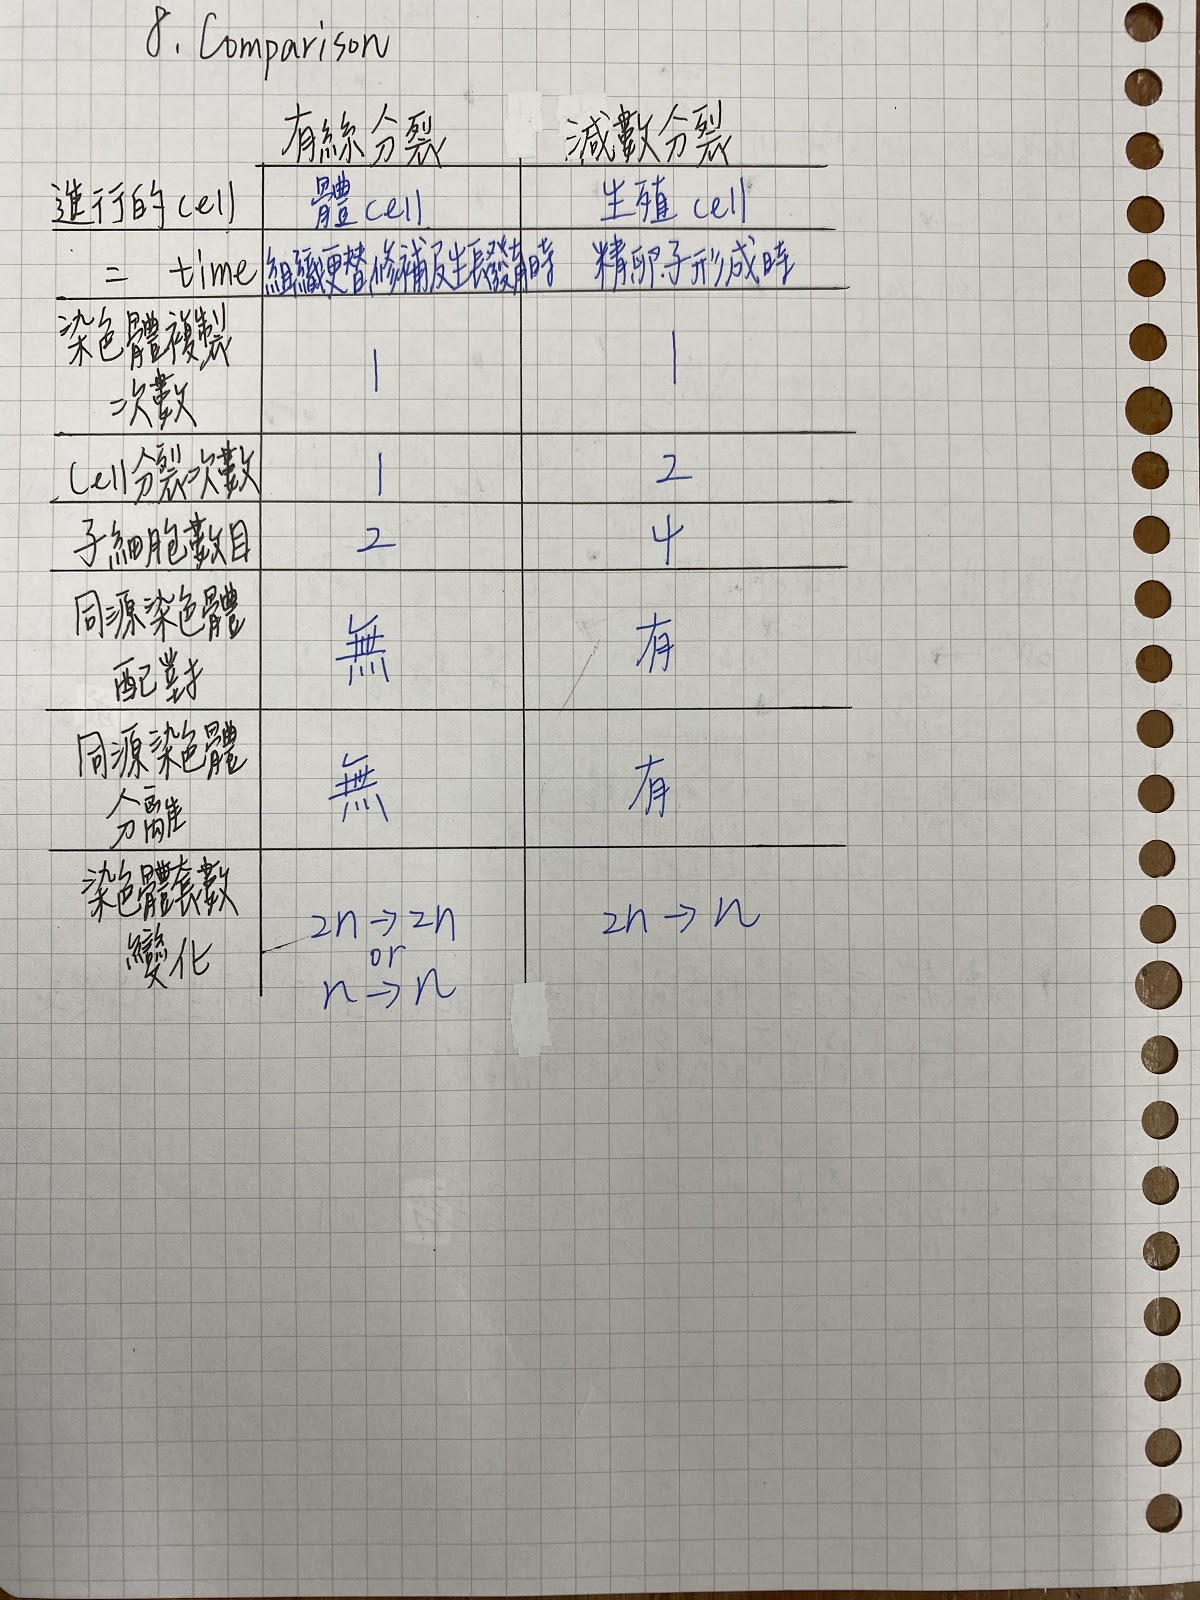 8. Comparison
有絲分裂 減數分裂
進行的cell 體cell 生殖cell
= time 組織更替修補及生長發育時 精卵子形成時
染色體複製
次數 1 1
Cell分裂次數 1 2
子細胞數目 2 4
同源染色體
配對 無 有
同源染色體
分離 無 有
染色體套數
變化 2n→2n 2n→n
or
n→n